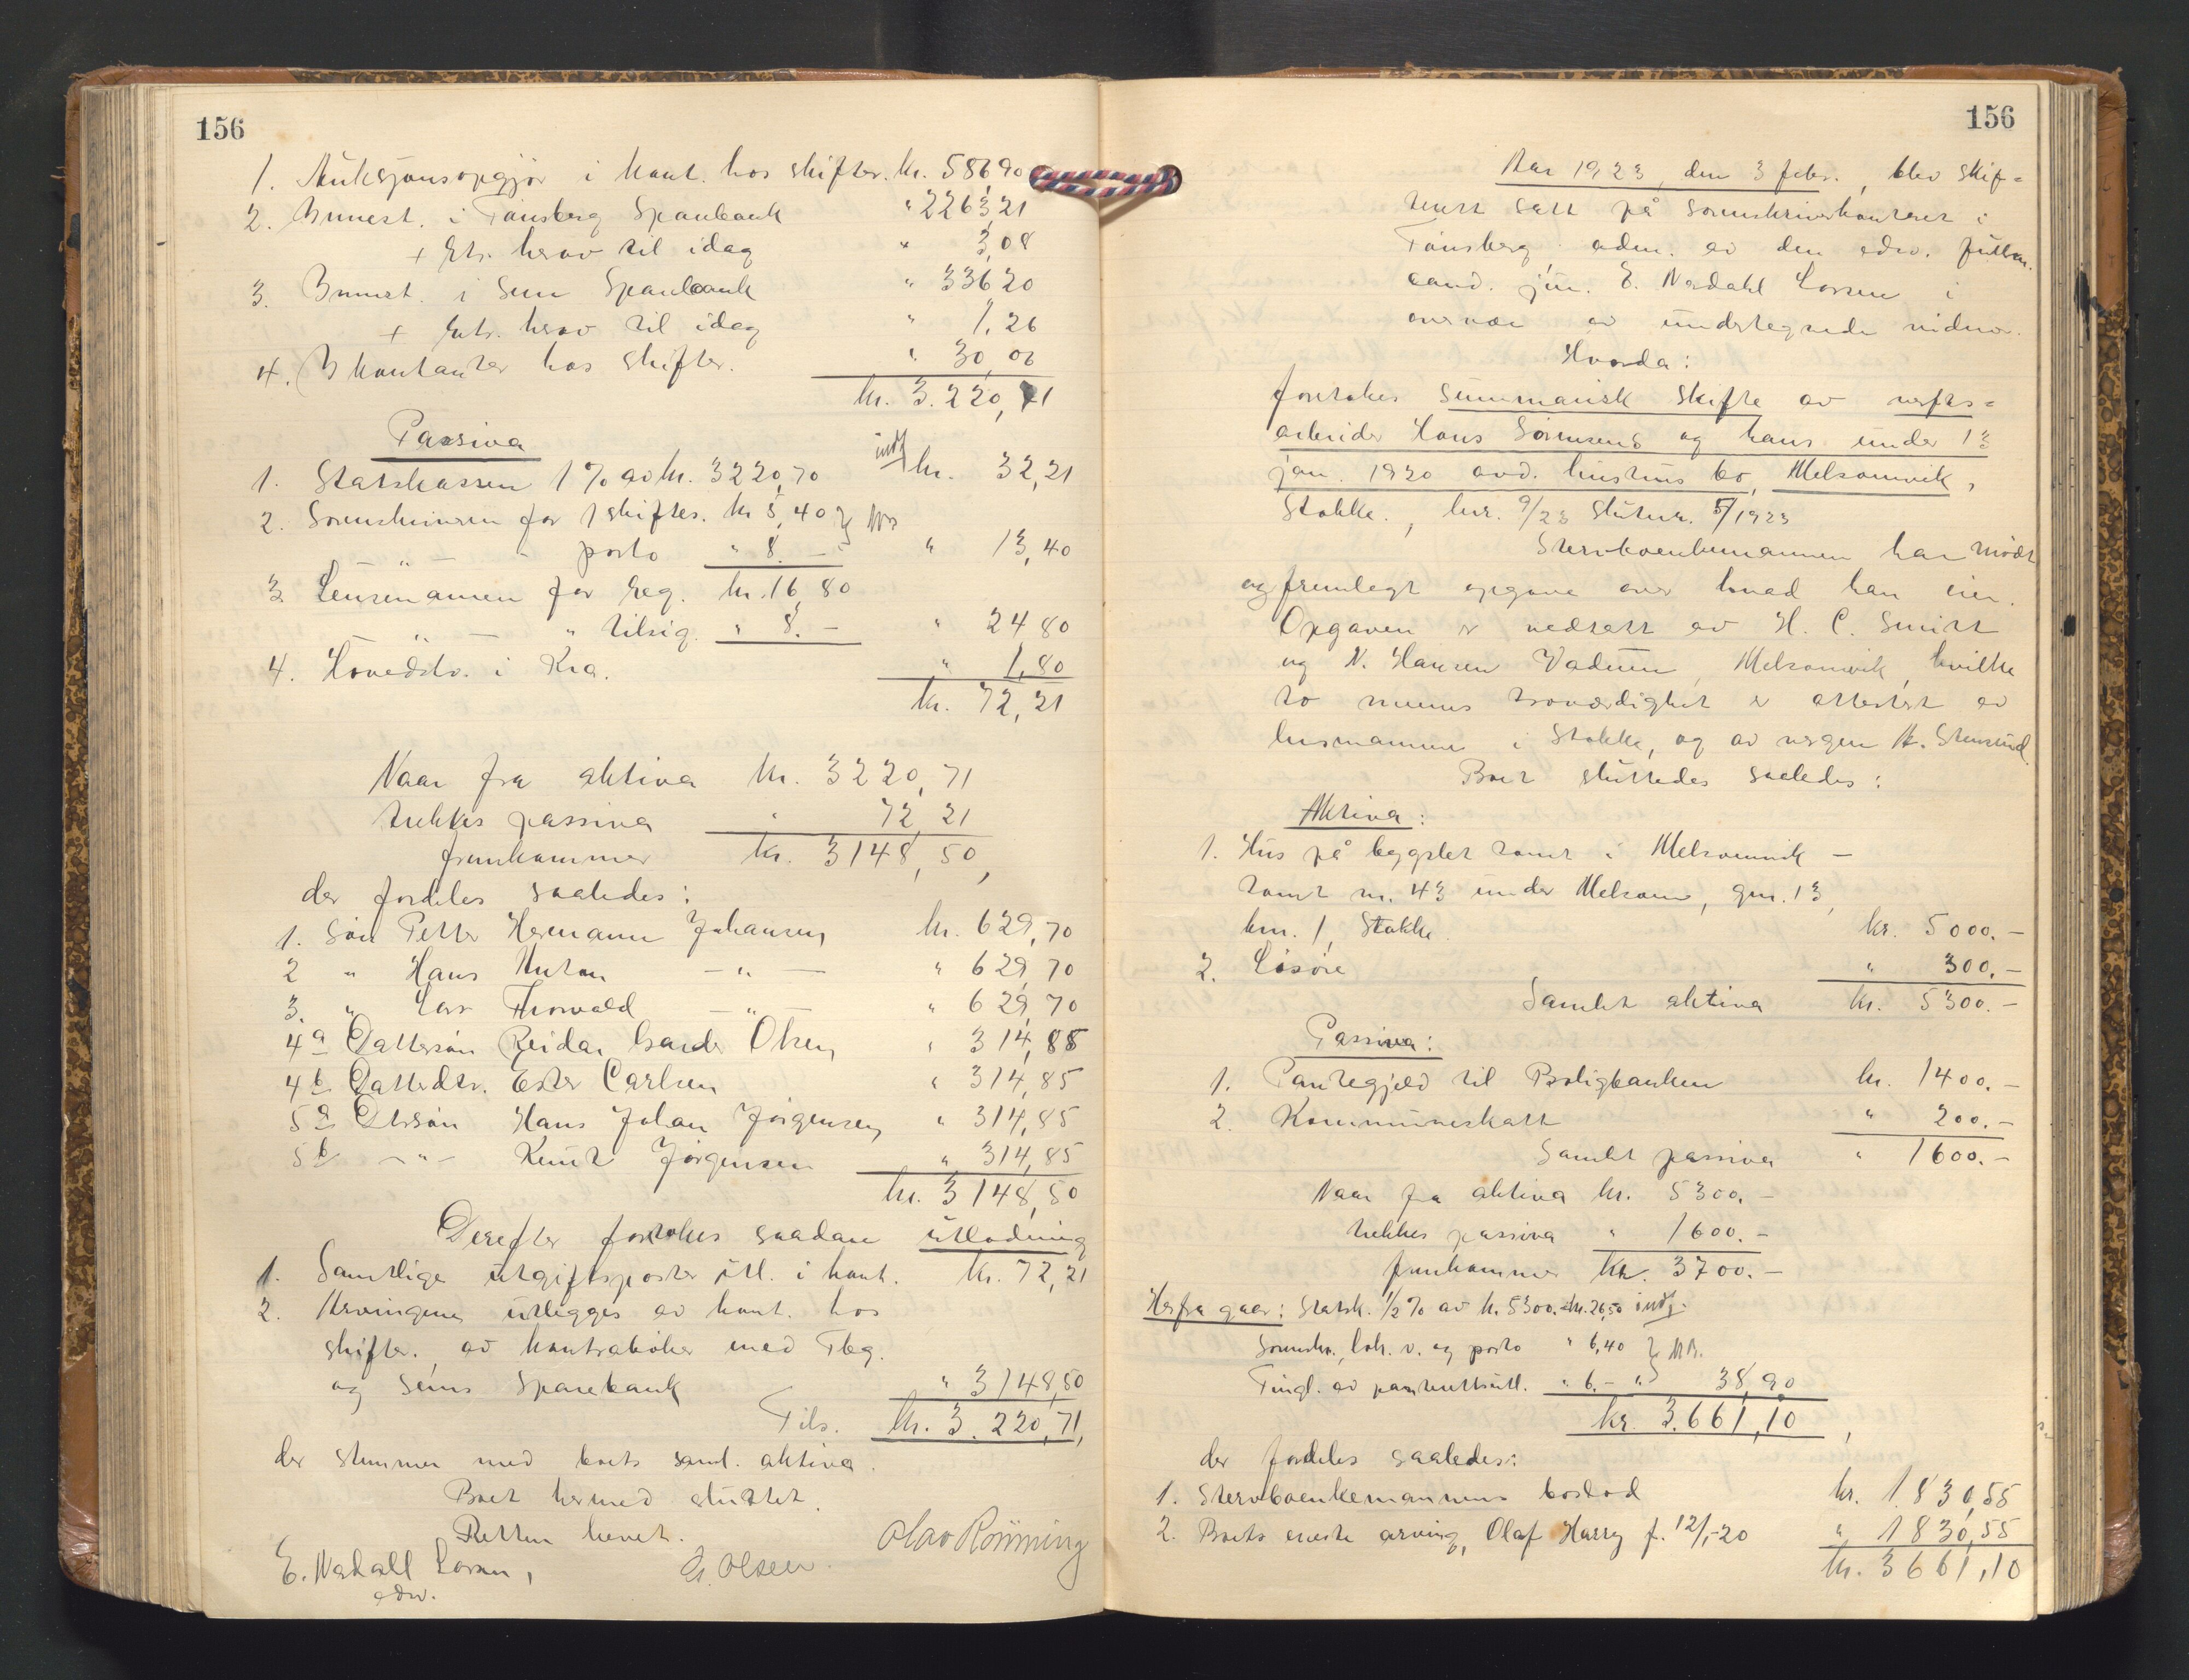 156
1. Auksjonsopgjør i kont. hos skifter. kr. 586 90
2. Innest. i Tønsberg Sparebank " 2263,21
+ Rtr. herav til idag " 3,08
3. Innest. i Sem Sparebank " 336 20
+ Rtr. herav til idag " 1,26
4. I kontanter hos skifter. " 30,06
kr. 3.220,71
Passiva
1. Statskassen 1% av kr. 3220,70 indf kr. 32,21
2. Sorenskriveren for 1 skiftes. kr 5,40
— " — - porto " 8.- " 13,40
3. Lensmannen for reg. kr. 16,80
— " — " tilsig. " 8.- " 24 80
4. Hovedstv. i Kra. " 1,80
kr. 72,21
Naar fra aktiva kr. 3220,71
trekkes passiva " 72 21
fremkommer kr. 3148,50,
der fordeles saaledes:
1. Søn Petter Hermann Johansen kr. 629,70
2 " Hans Anton — " — " 629,70
3. " Lars Thorvald — " — " 629,70
4a Dattersøn Reidar Olsen " 314,85
4b Datterdtr. Ester Carlsen " 314,85
5a Dtrsøn Hans Johan Jørgensen " 314,85
5b — " — Knut Jørgensen " 314,85
kr. 3148,50
Derefter foretokes saadan utlodning
1. Samtlige utgiftsposter utl. i kont. kr. 72,21
2. Arvingene utlegges av kont. hos
skifter. av kontrabøker med Tbg.
og Sems Sparebank " 3148,50
Tils. kr. 3.220,71,
der stemmer med boets saml. aktiva.
Boet hermed sluttet.
Retten hevet.
E. Nadahl Larsen, A. Olsen. Olav Rønning
edv.
156
Aar 1923, den 3 febr., blev skif-
terett satt på sorenskriverkontoret i
Tønsberg adm. av den edsv. fullm.
cand. jur. E. Nadahl Larsen i
overvær av undertegnede vidner.
Hvorda:
foretokes summarisk skifte av verfts-
arbeider Hans Sørensens og hans under 13
jan. 1920 avd. hustrus bo, Melsomvik,
Stokke., ber. 9/23 slutn. 5/1923
Stervboenkemannen har møtt
og fremlagt opgave over hvad han eier.
Opgaven er vedtatt av H. C. Smith
og N. Hansen Vadum, Melsomvik, hvilke
to menns troværdighet er attestert av
lensmannen i Stokke, og av vergen A. Stensrud.
Boet sluttedes saaledes:
Aktiva:
1. Hus på bygslet tomt i Melsomvik —
tomt nr. 43 under Melsom, gnr. 13,
bnr. 1, Stokke. kr. 5000.-
2. Løsøre " 300.-
Samlet aktiva kr. 5300.-
Passiva:
1. Pantegjeld til Boligbanken kr. 1400.-
2. Kommuneskatt " 200.-
Samlet passiva " 1600.-
Naar fra aktiva kr. 5300.-
trekkes passiva " 1600.-
fremkommer kr. 3700.-
Herfra gaar: Statsk. 1/2% av kr. 5300.- kr. 26,50 indf.
Sorenskr. beh. v. og porto " 6,40
Tingl. av panterettsutl. " 6.- " 38,90
kr. 3.661,10,
der fordeles saaledes:
1. Stervboenkemannens boslod kr. 1.830,55
2. Boets eneste arving, Olaf Harry f. 12/1-20 " 1830,55
kr. 3661,10